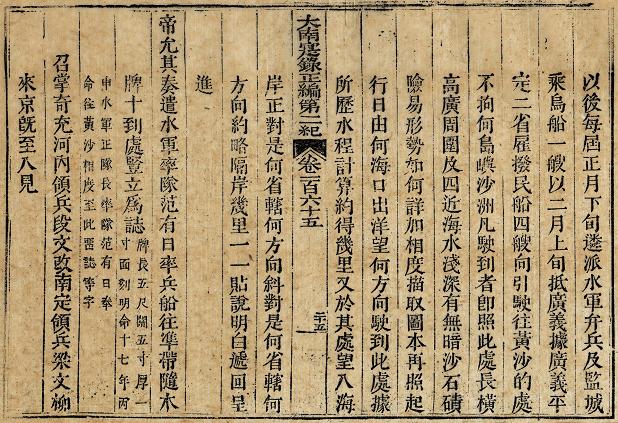 以後每屆正月下旬遴派水軍弁兵及監城
乘烏船一艘以二月上旬抵廣義據廣義平
定二省雇撥民船四艘向引駛往黃沙的處
不拘何島嶼沙洲凡駛到者卽照此處長橫
高廣周圍及四近海水淺深有無暗沙石磧
險易形勢如何詳加相度描取圖本再照起
行日由何海口出洋望何方向駛到此處據
所歷水程計算約得幾里又於其處望入海
大南寔錄正編第二紀 卷一百六十五 二十五
岸正對是何省轄何方向斜對是何省轄何
方向約略隔岸幾里一一貼說明白遞回呈
進
帝允其奏遣水軍率隊范有日率兵船往準帶隨木
牌十到處豎立爲誌牌長五尺闊五寸厚一
寸面刻明命十七年丙
申水軍正隊長率隊范有日奉
命往黃沙相度至此畱誌等字
召掌奇充河內領兵段文改南定領兵梁文柳
來京旣至入見